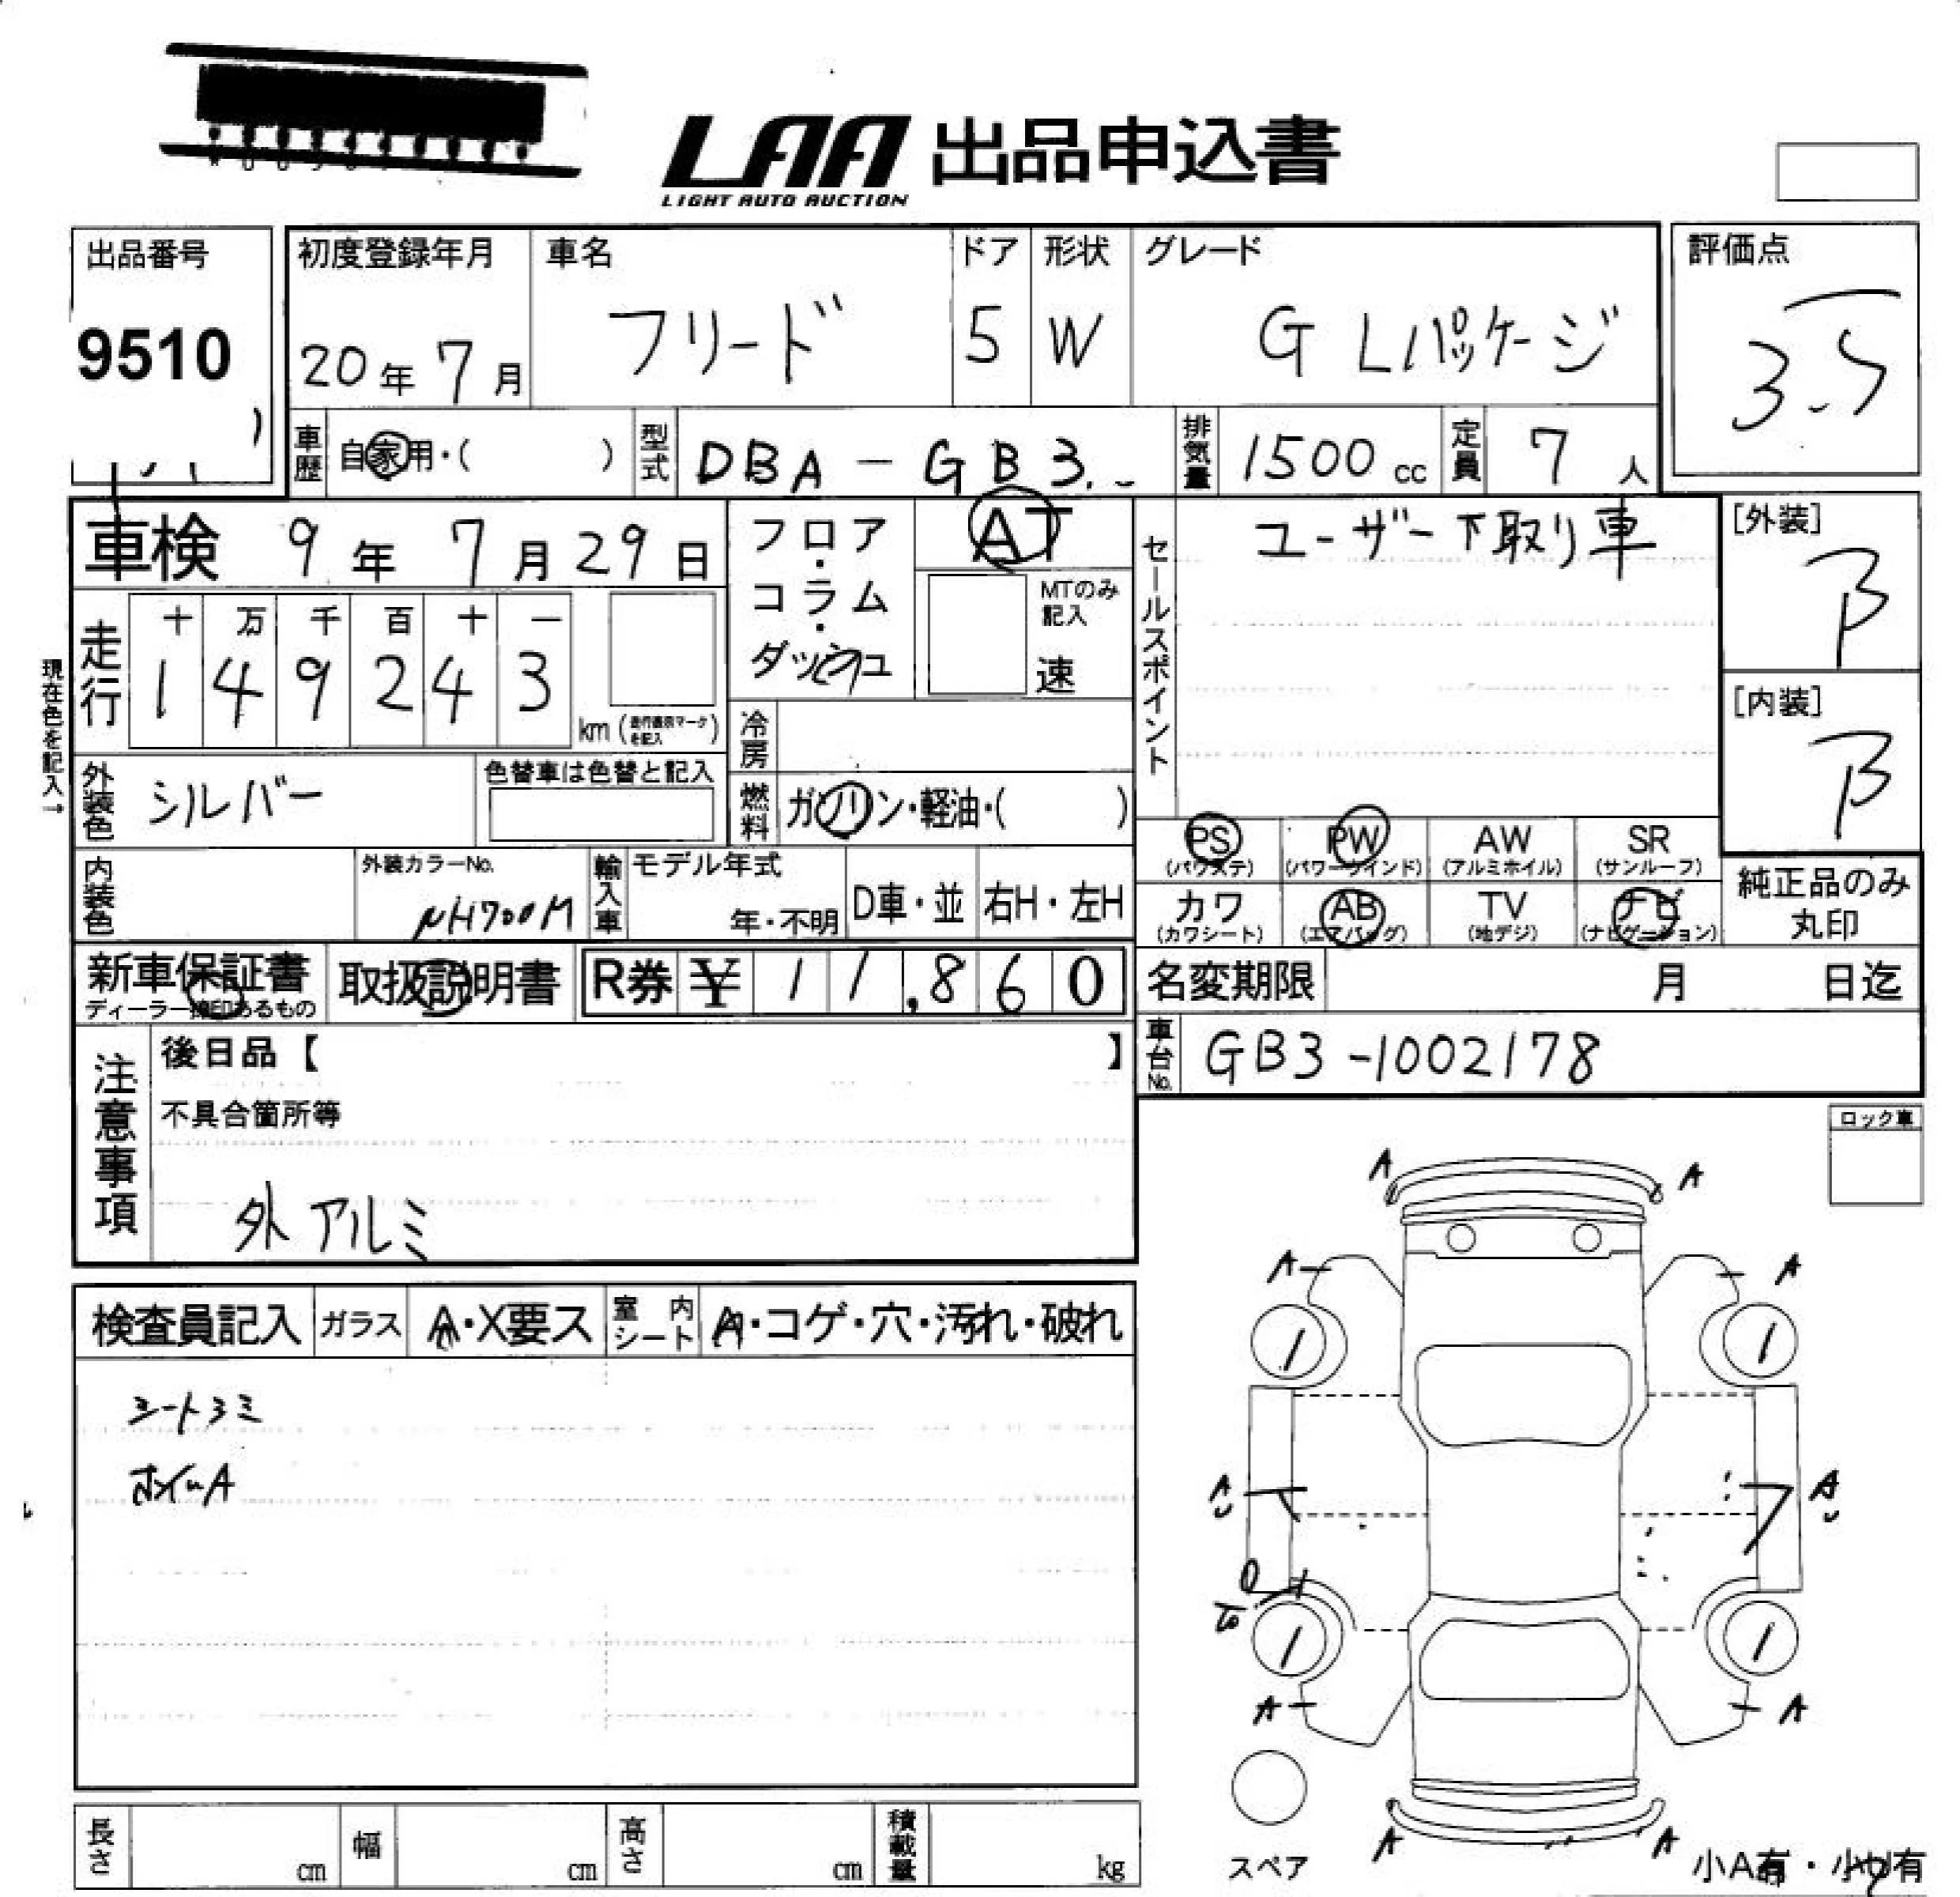 LAA 出品申込書
LIGHT AUTO AUCTION
出品番号
9510
初度登録年月
20年 7月
車名
フリード
ドア
5
形状
W
グレード
G Lパッケージ
評価点
3.5
車歴 自家用・( )
型式 DBA-GB3
排気量 1500 cc
定員 7 人
車検 9年 7月 29日
フロア・コラム・ダッシュ
AT
MTのみ記入
速
セールスポイント
ユーザー下取り車
[外装]
B
[内装]
B
現在色を記入→
走行
十 万 千 百 十 一
1 4 9 2 4 3
km (走行直前マークを記入)
冷房
燃料 ガソリン・軽油・( )
外装色 シルバー
色替車は色替と記入
内装色
外装カラーNo.
NH700M
輸入車
モデル年式
年・不明
D車・並
右H・左H
PS (パワステ)
PW (パワーウインド)
AW (アルミホイル)
SR (サンルーフ)
カワ (カワシート)
AB (エアバッグ)
TV (地デジ)
ナビ (ナビゲーション)
純正品のみ
丸印
新車保証書
ディーラー捺印あるもの
取扱説明書
R券 ¥ 11,860
名変期限 月 日迄
車台No. GB3-1002178
注意事項
後日品【 】
不具合箇所等
外アルミ
ロック車
検査員記入
ガラス A・X要ス
室内シート A・コゲ・穴・汚れ・破れ
シートシミ
ホイルA
A A
A A
1 1
A A
1 1
A A
A A
スペア
小A有・小U有
長さ cm
幅 cm
高さ cm
積載量 kg